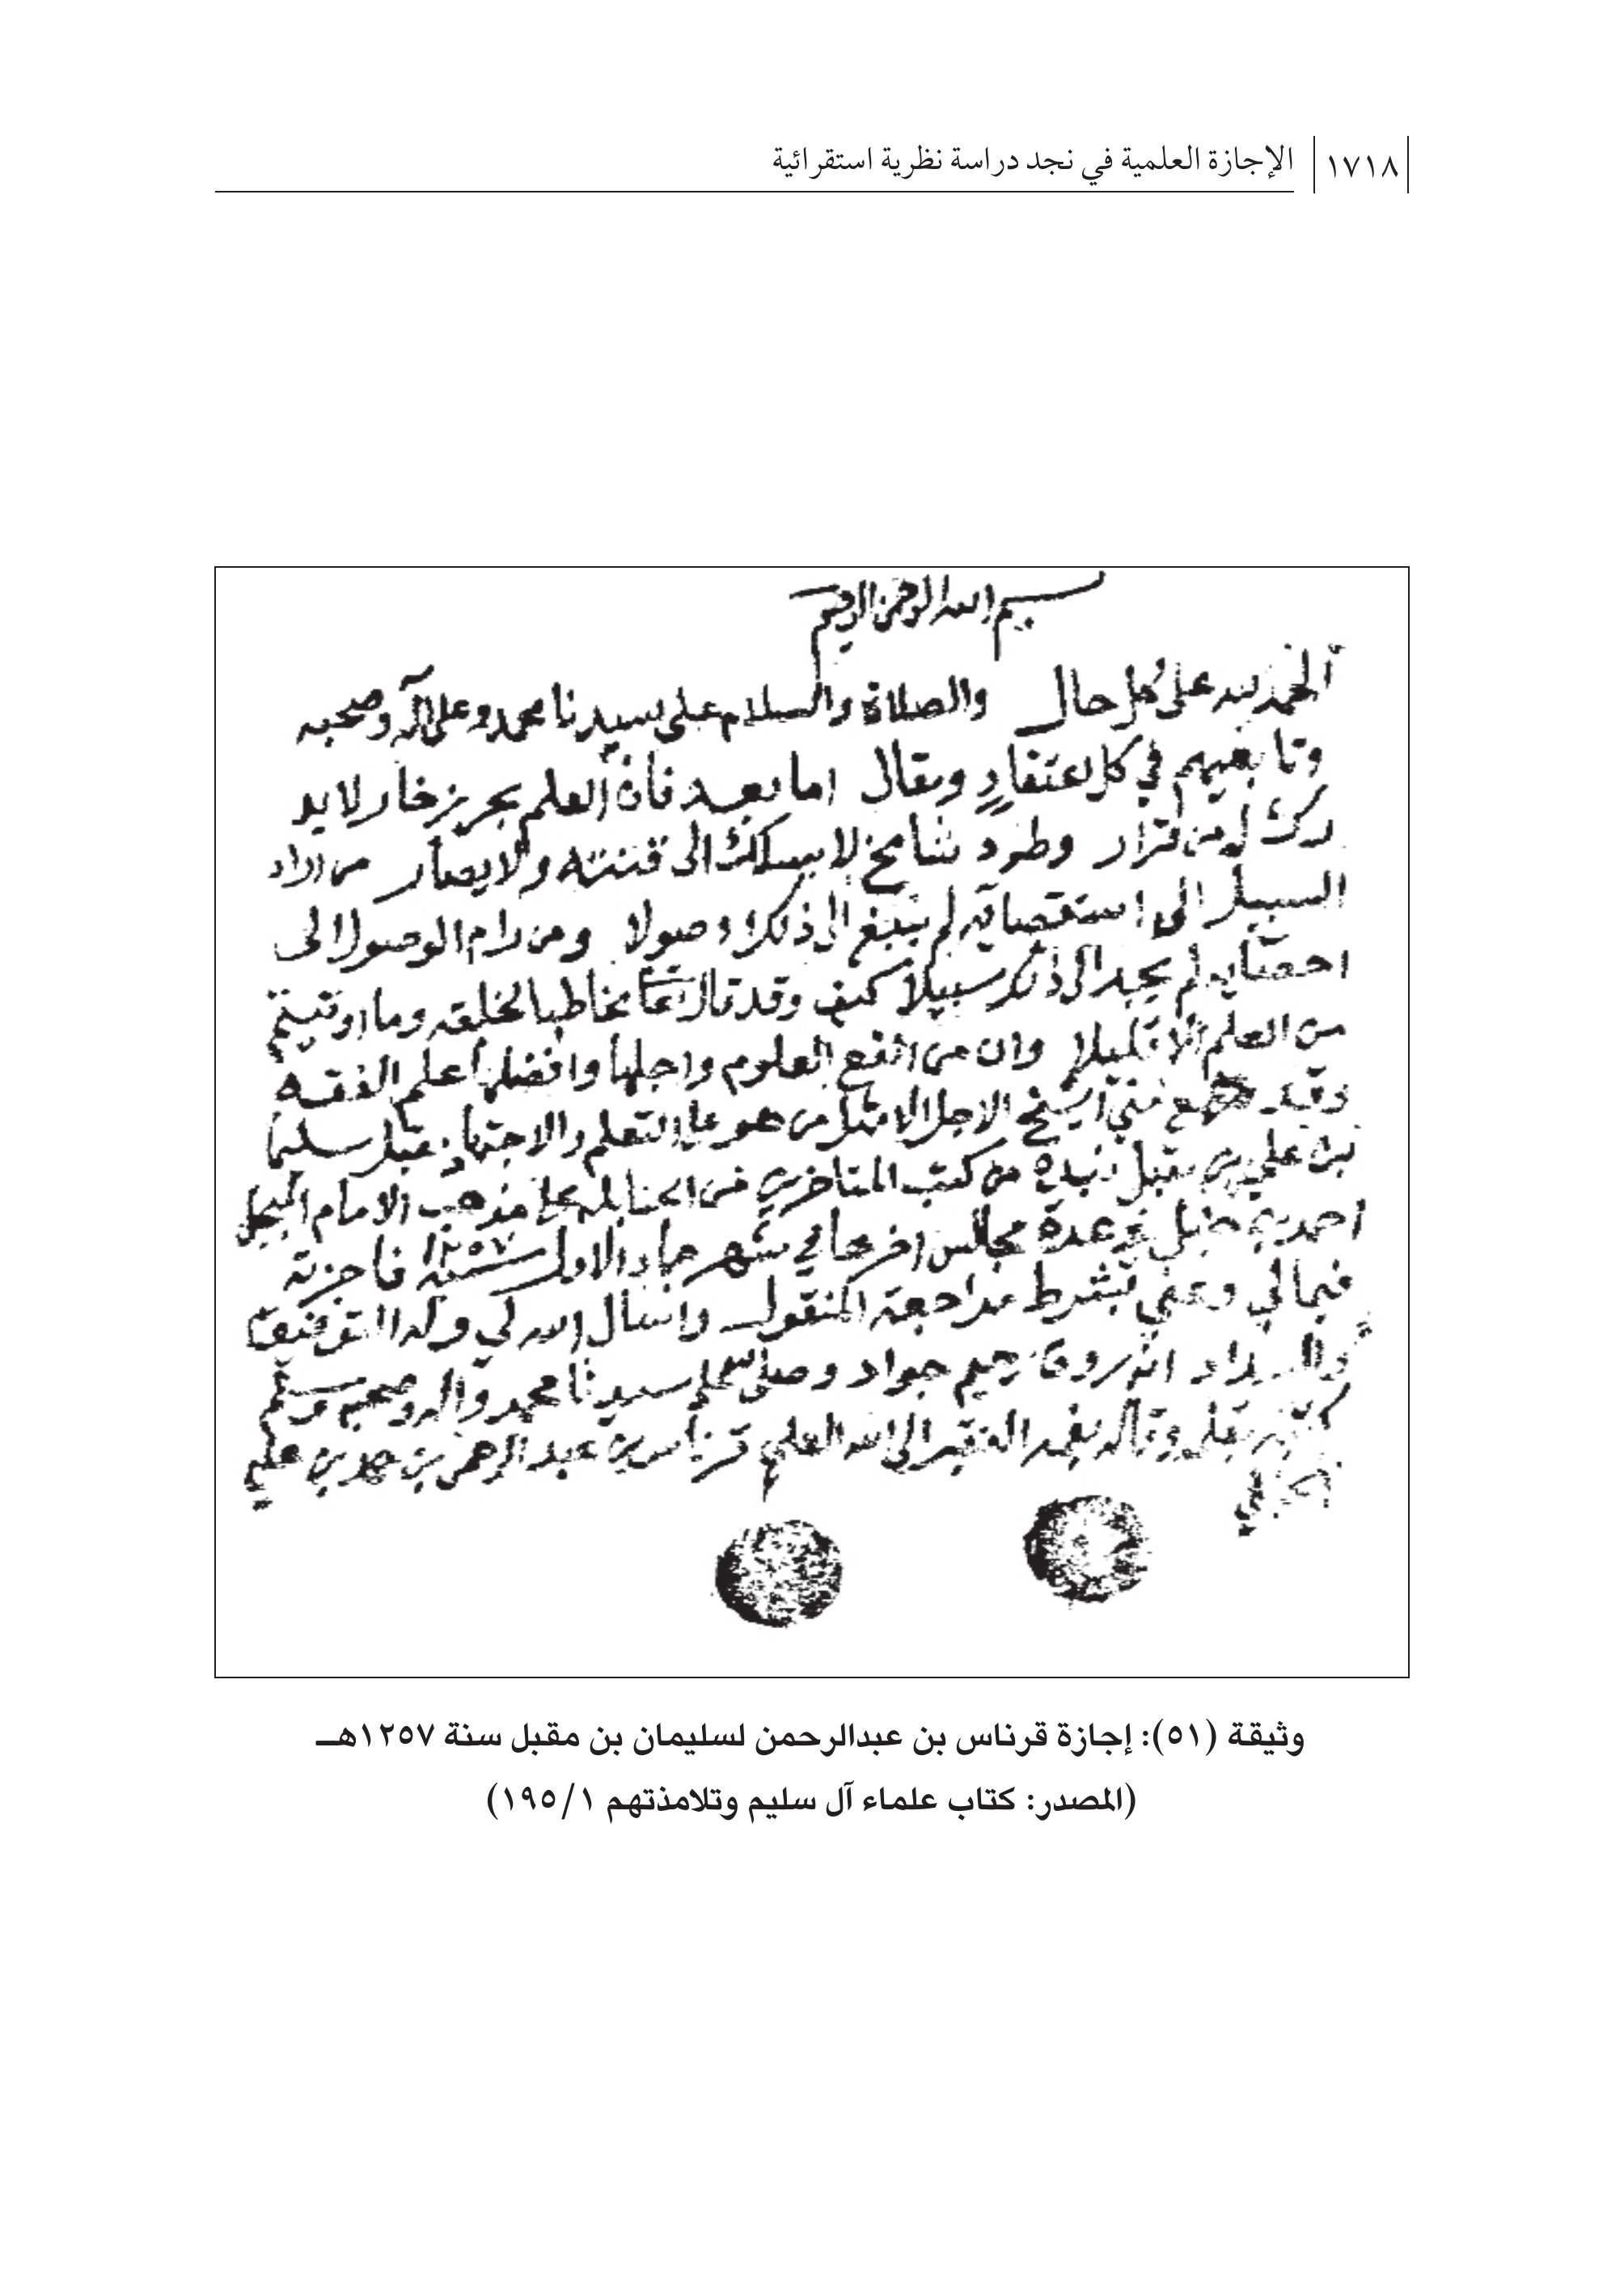 ١٧١٨ الإجازة العلمية في نجد دراسة نظرية استقرائية
بسم الله الرحمن الرحيم
الحمد لله على كل حال والصلاة والسلام على سيدنا محمد وعلى آله وصحبه
وتابعيهم في كل اعتقاد ومقال اما بعد فان العلم بحر زخار لا يد
رك له من قرار وطود شامخ لا يسلك الى قنته ولا يصار من اراد
السبيل الى استقصايه لم يبلغ الى ذلك وصولا ومن رام الوصول الى
احصايه لم يجد الى ذلك سبيلا كيف وقد قال تعالى مخاطبا لخلقه وما اوتيتم
من العلم الا قليلا وان من انفع العلوم واجلها وافضلها علم الفقه
وقد سمع مني الشيخ الاجل الامثل من هو على التعلم والاجتهاد مقبل سليمان
بن علي بن مقبل نبذة من كتب المتاخرين من الحنابلة على مذهب الامام المبجل
احمد بن حنبل في عدة مجالس اخرها في شهر جماد الاول سنة ١٢٥٧ فاجزته
فيما لي وعني بشرط مراجعة المنقول واسال الله لي وله التوفيق
والسداد انه رؤف رحيم جواد وصلى الله على سيدنا محمد وآله وصحبه وسلم
وقاله بفمه الفقير الى الله العلي قرناس بن عبد الرحمن بن حمد بن علي
الحنبلي
وثيقة (٥١): إجازة قرناس بن عبدالرحمن لسليمان بن مقبل سنة ١٢٥٧هـ
(المصدر: كتاب علماء آل سليم وتلامذتهم ١/١٩٥)